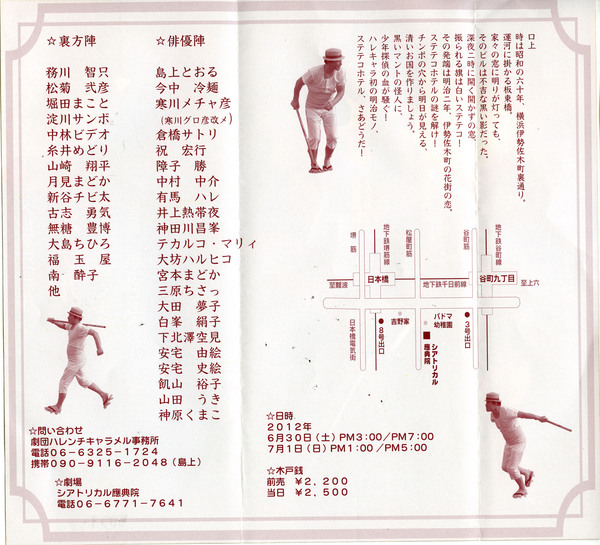 口上
時は昭和の六十年、横浜伊勢佐木町裏通り。
運河に掛かる板東橋、
家々の窓に明りが灯っても、
そのビルは不吉な黒い影だった。
深夜二時に開く開かずの窓、
振られる旗は白いステテコ!
その発端は明治二年、伊勢佐木町の花街の恋。
ステテコホテルの謎を解け!
チンポの穴から明日が見える、
清いお国を作りましょう。
黒いマントの怪人に、
少年探偵の血が騒ぐ!
ハレキャラ初の明治モノ、
ステテコホテル、さあどうだ!
☆俳優陣
島上とおる
今中 冷麺
寒川メチャ彦
(寒川グロ彦改メ)
倉橋サトリ
祝 宏行
障子 勝
中村 中介
有馬 ハレ
井上熱帯夜
神田川昌峯
テカルコ・マリィ
大坊ハルヒコ
宮本まどか
三原ちさっ
大田 夢子
白峯 絹子
下北澤空見
安宅 由絵
安宅 史絵
飢山 裕子
山田 うき
神原くまこ
☆裏方陣
務川 智只
松菊 弐彦
堀田まこと
淀川サンボ
中林ビデオ
糸井めどり
山崎 翔平
月見まどか
新谷チビ太
古志 勇気
無糖 豊博
大島ちひろ
福 玉 屋
南 酔子
他
堺筋
地下鉄堺筋線
松屋町筋
谷町筋
地下鉄谷町線
至難波
日本橋
地下鉄千日前線
谷町九丁目
至上六
日本橋電気街
●8号出口
吉野家
パドマ幼稚園
シアトリカル應典院
●3号出口
☆問い合わせ
劇団ハレンチキャラメル事務所
電話06-6325-1724
携帯090-9116-2048(島上)
☆劇場
シアトリカル應典院
電話06-6771-7641
☆日時
2012年
6月30日(土)PM3:00/PM7:00
7月1日(日)PM1:00/PM5:00
☆木戸銭
前売 ¥2,200
当日 ¥2,500